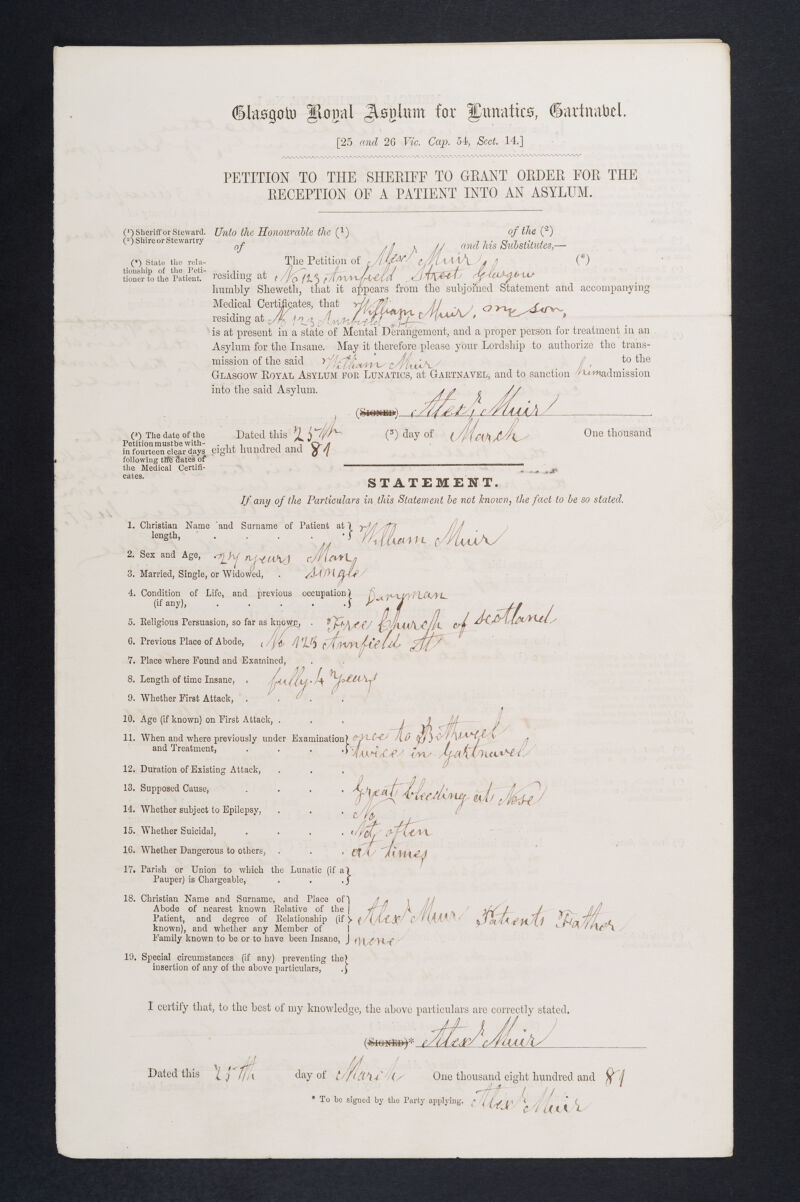 Glasgow Royal Asylum for Lunatics, Gartnabel.
[25 and 26 Vic. Cap. 54, Sect. 14.]
PETITION TO THE SHERIFF TO GRANT ORDER FOR THE
RECEPTION OF A PATIENT INTO AN ASYLUM.
(¹) Sheriff or Steward.
(²) Shire or Stewartry
Unto the Honourable the (¹) of the (²)
of and his Substitutes,—
(⁴) State the rela-
tionship of the Peti-
tioner to the Patient.
The Petition of Alexr Muir (⁴)
residing at No 123 Annfield Street Glasgow
humbly Sheweth, that it appears from the subjoined Statement and accompanying
Medical Certificates, that William Muir, my son,
residing at No 123 Annfield St
is at present in a state of Mental Derangement, and a proper person for treatment in an
Asylum for the Insane. May it therefore please your Lordship to authorize the trans-
mission of the said William Muir to the
GLASGOW ROYAL ASYLUM FOR LUNATICS, at GARTNAVEL, and to sanction him admission
into the said Asylum.
(SIGNED) Alexr Muir
(³) The date of the
Petition must be with-
in fourteen clear days
following the dates of
the Medical Certifi-
cates.
Dated this 25th (³) day of March One thousand
eight hundred and 81
STATEMENT.
If any of the Particulars in this Statement be not known, the fact to be so stated.
1. Christian Name and Surname of Patient at
length, William Muir
2. Sex and Age, 24 years Man
3. Married, Single, or Widowed, single
4. Condition of Life, and previous occupation
(if any), Daryman
5. Religious Persuasion, so far as known, Free Church of Scotland
6. Previous Place of Abode, No 123 Annfield St
7. Place where Found and Examined,
8. Length of time Insane, fully 4 years
9. Whether First Attack,
10. Age (if known) on First Attack,
11. When and where previously under Examination
and Treatment, once to Bothwel
twice in Gartnavel
12. Duration of Existing Attack,
13. Supposed Cause, Great bleeding at Nose
14. Whether subject to Epilepsy, No
15. Whether Suicidal, Not often
16. Whether Dangerous to others, at times
17. Parish or Union to which the Lunatic (if a
Pauper) is Chargeable,
18. Christian Name and Surname, and Place of
Abode of nearest known Relative of the
Patient, and degree of Relationship (if
known), and whether any Member of
Family known to be or to have been Insane,
Alexr Muir Patients Father
none
19. Special circumstances (if any) preventing the
insertion of any of the above particulars,
I certify that, to the best of my knowledge, the above particulars are correctly stated.
(SIGNED)* Alexr Muir
Dated this 25th day of March One thousand eight hundred and 81
* To be signed by the Party applying. Alexr Muir